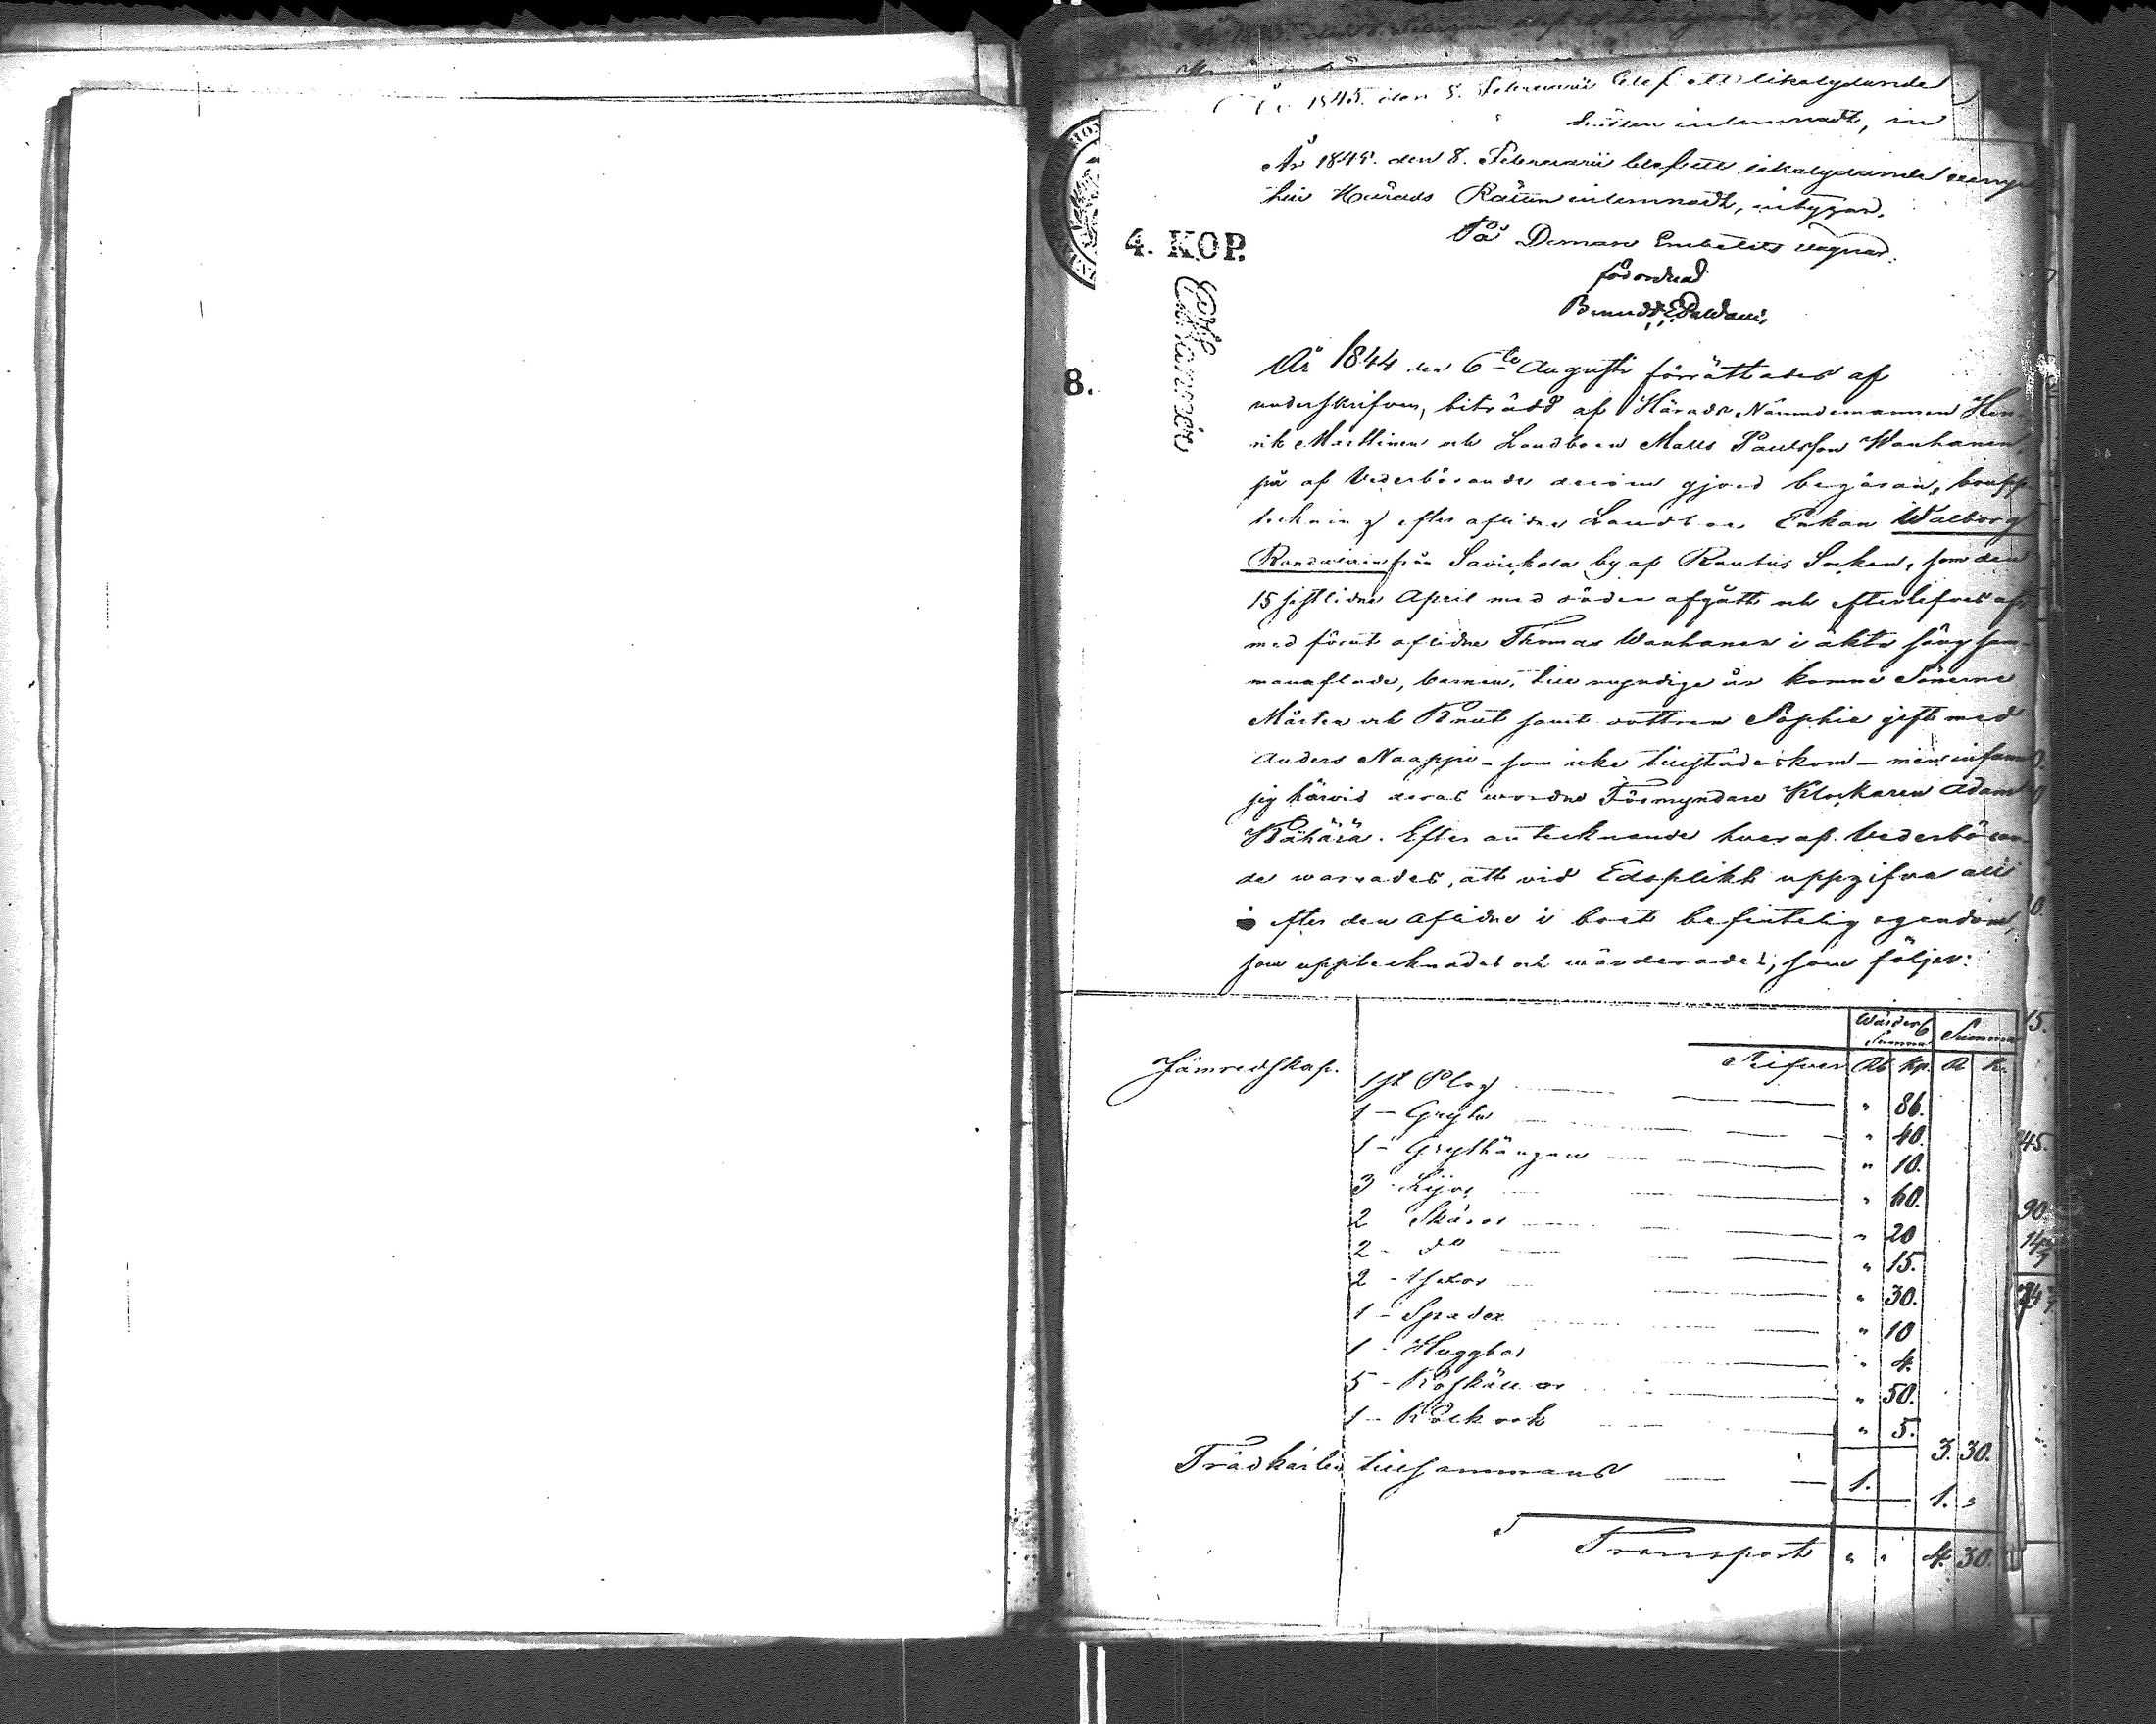 År 1845. den 8. Februarii blef ett likalydande
Rätten inlemnadt, in
År 1845. den 8. Februarii blef ett likalydande exemp
till Härads Rätten inlemnadt, intygar,
På Domare Embetets vägnar.
förordnad
4. KOP.
8.
År 1844 den 6te Augusti förrättades af
underskrifven, biträdd af Härads Nämndemannen Hen-
rik Marttinen och Landboen Matts Paulsson Wanhanen,
på af Vederbörande derom gjord begäran, boupp
teckning efter aflidna Landboe Enkan Walborg
från Saviekola by af Rautus Socken, som den
15 sistlidne April med döden afgått och efterlefves af
med förut aflidne Thomas Wanhanen i äkta säng sam-
manaflade, barnen, till myndige år komne Sönerne
Mårten och Knut samt dottren Sophie gift med
Anders Naappi – som icke tillstädeskom – men infann
sig härvid deras vordne Förmyndare Klockaren Adam
Kähärä. Efter antecknande hvaraf Vederböran
de warnades, att vid Edsplikt uppgifva all
efter den aflidna i boet befintelig egendom,
som upptecknades och wärderades, som följer:
Wärder Summa Summa
Silfver Rb Kp. R K.
Järnredskap.
1 st Plog " 86.
1 – Gryta " 40.
1 – Grythängare " 10.
3 - Lijor " 60.
2 Skäror " 20
2 - do " 15.
2 - Yxor " 30.
1 – Spade " 10
1 - Huggbor " 4.
5 - Koskällor " 50.
1 - Rockrok " 5. 3. 30.
Trädkärlen tillsammans 1. 1. "
Transport " " 4. 30.